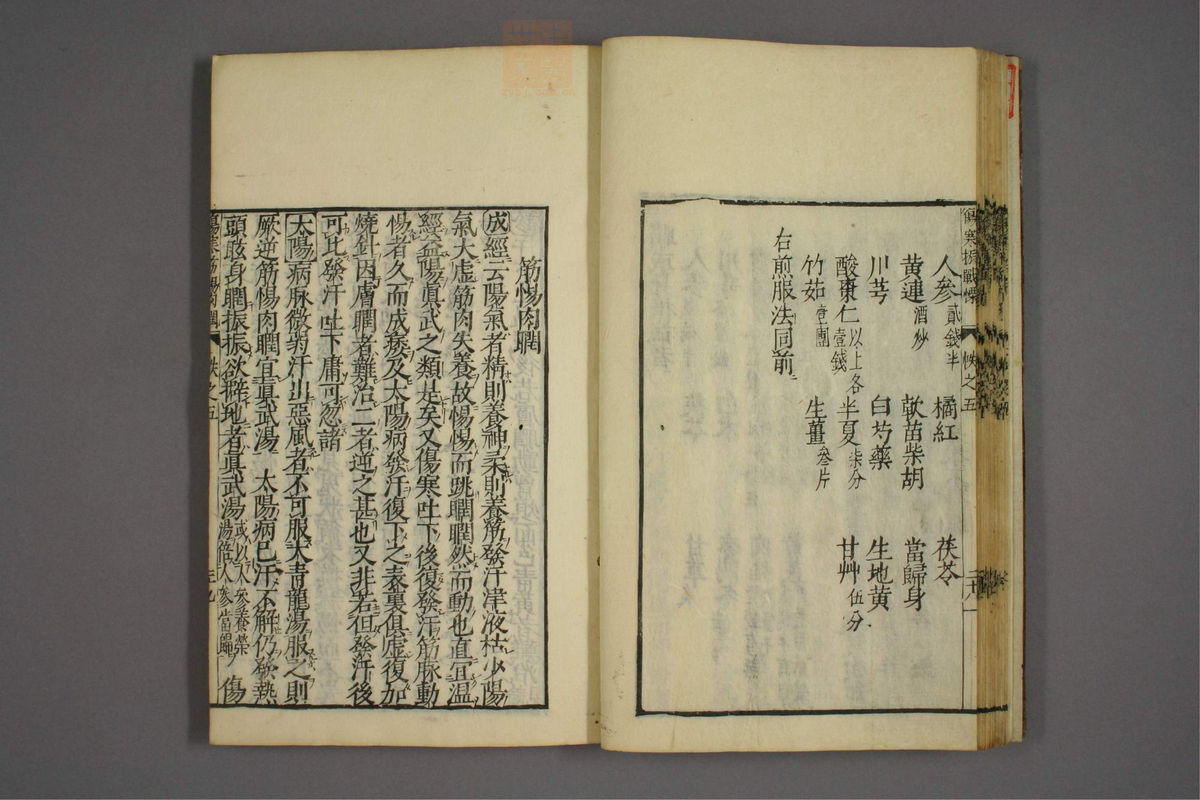 人參貳錢半 橘紅 茯苓
黄連酒炒 軟苗柴胡 當歸身
川芎 白芍藥 生地黄
酸棗仁以上各壹錢 半夏柒分 甘艸伍分
竹茹壹團 生薑叁片
右煎服法同前
筋惕肉瞤
成經云陽氣者精則養神柔則養筋發汗津液枯少陽
氣大虛筋肉失養故惕惕而跳瞤瞤然而動也直宜温
經益陽眞武之類是矣又傷寒吐下後復發汗筋脉動
惕者久而成痿及太陽病發汗復下之表裏俱虛復加
燒針因膚瞤者難治二者逆之甚也又非若但發汗後
可比發汗吐下庸可忽諸
太陽病脉微弱汗出惡風者不可服大青龍湯服之則
厥逆筋惕肉瞤宜眞武湯 太陽病已汗不解仍發熱
頭眩身瞤振振欲擗地者眞武湯或以人參養榮湯倍人參當歸 傷